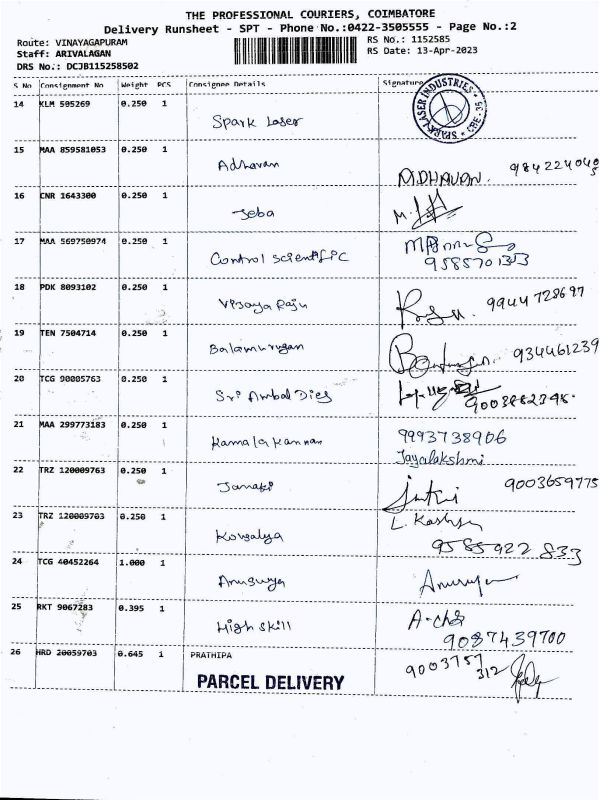 THE PROFESSIONAL COURIERS, COIMBATORE
Delivery Runsheet - SPT - Phone No.:0422-3505555 - Page No.:2
Route: VINAYAGAPURAM RS No.: 1152585
Staff: ARIVALAGAN RS Date: 13-Apr-2023
DRS No.: DCJB115258502
S No Consignment No Weight PCS Consignee Details Signature
SPARK LASER INDUSTRIES * CBE-35 *
14 KLM 505269 0.250 1 Spark Laser
15 MAA 859581053 0.250 1 Adhavan
ADHAVAN. 9842240405
16 CNR 1643300 0.250 1 Jeba
M.
17 MAA 569750974 0.250 1 Control Scientific
18 PDK 8093102 0.250 1 Vijaya Raju
9944728697
19 TEN 7504714 0.250 1 Balamurugan
934461239
20 TCG 90005763 0.250 1 Sri Ambal Dies
21 MAA 299773183 0.250 1 Kamalakannan 9993738906
Jayalakshmi
22 TRZ 120009763 0.250 1 Janaki
9003659775
23 TRZ 120009703 0.250 1 Kowsalya
9585922833
24 TCG 40452264 1.000 1 Anusuya
25 RKT 9067283 0.395 1 High Skill
9087439700
26 HRD 20059703 0.645 1 PRATHIPA 9003757
312
PARCEL DELIVERY